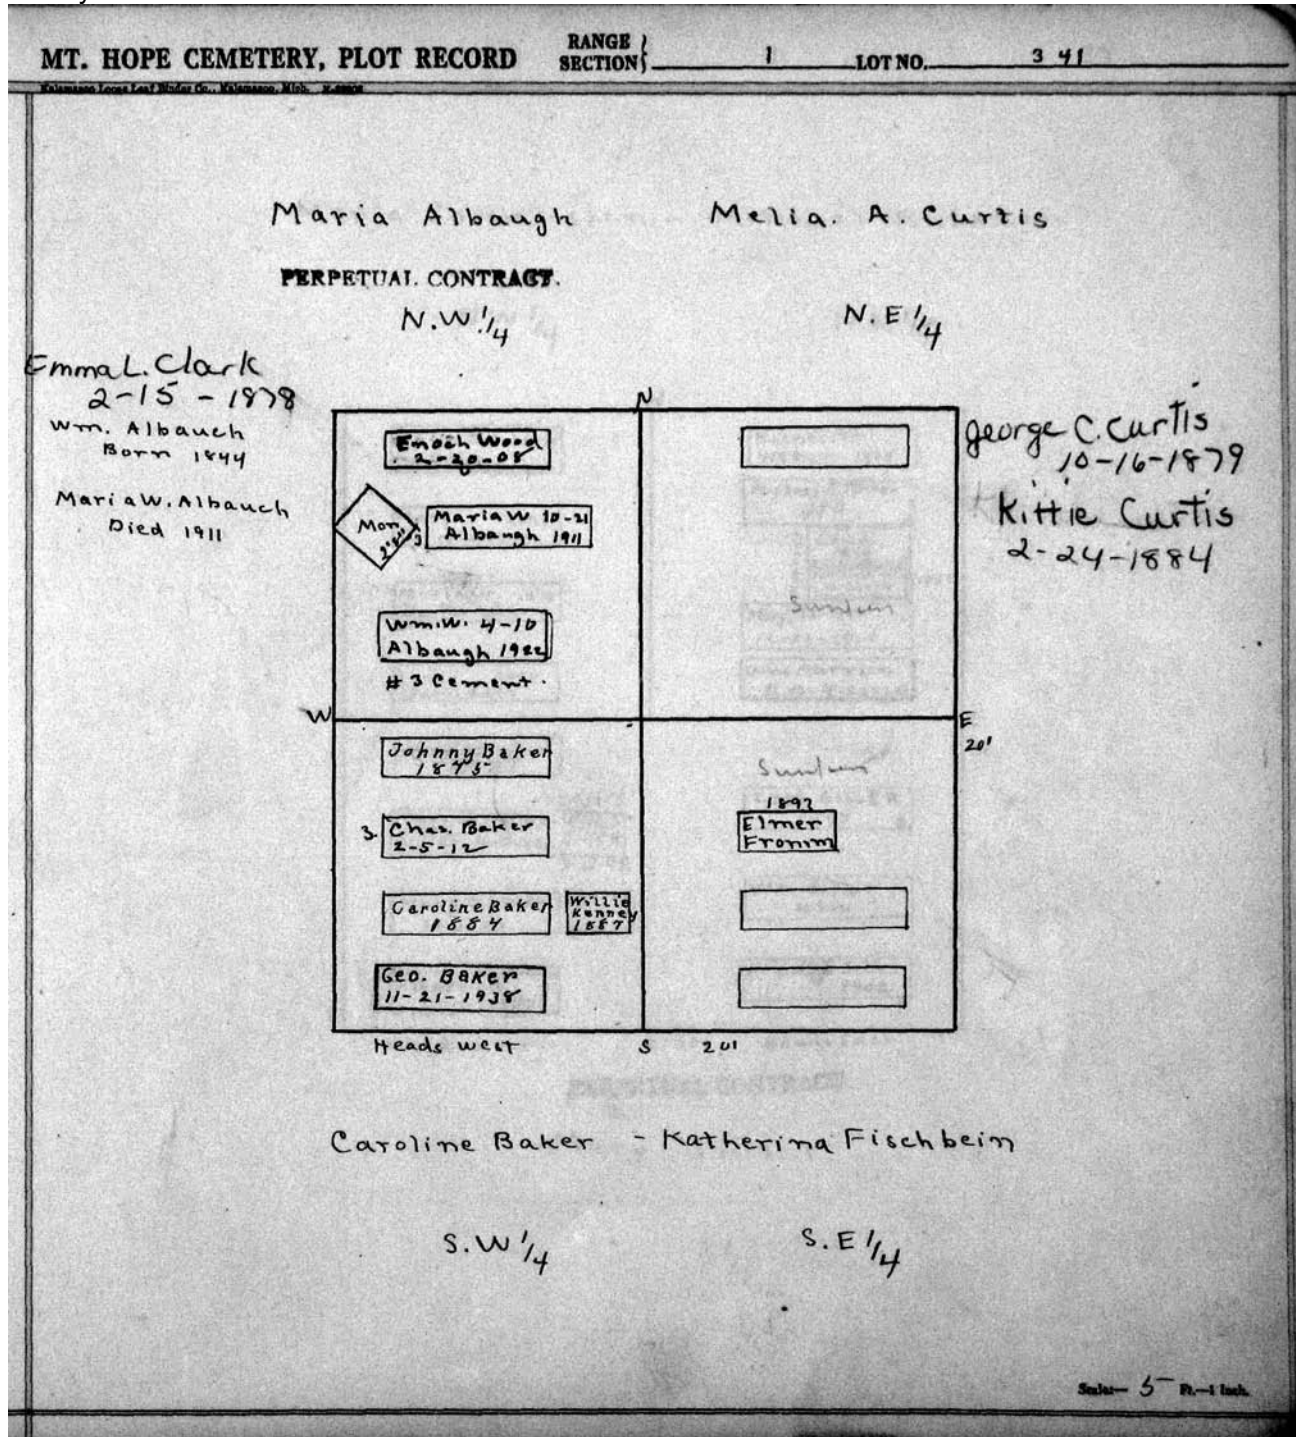 MT. HOPE CEMETERY, PLOT RECORD
RANGE
SECTION 1 LOT NO. 341
Kalamazoo Loose Leaf Binder Co., Kalamazoo, Mich.
Maria Albaugh Melia. A. Curtis
PERPETUAL CONTRACT.
N.W. 1/4 N.E 1/4
Emma L. Clark
2-15-1878
Wm. Albauch
Born 1844
Maria W. Albauch
Died 1911
N
Enoch Wood
2-20-08
Mon
Maria W 10-21
Albaugh 1911
Wm. W. 4-10
Albaugh 1922
#3 Cement.
George C. Curtis
10-16-1879
Kittie Curtis
2-24-1884
Sunken
W
E
20'
Johnny Baker
1875
3. Chas. Baker
2-5-12
Caroline Baker
1884
Willie
Kenney
1887
Geo. Baker
11-21-1938
Sunken
Elmer
Fronim
Heads west S 20'
Caroline Baker - Katherina Fischbein
S.W 1/4 S.E 1/4
Scale— 5 Ft.—1 Inch.